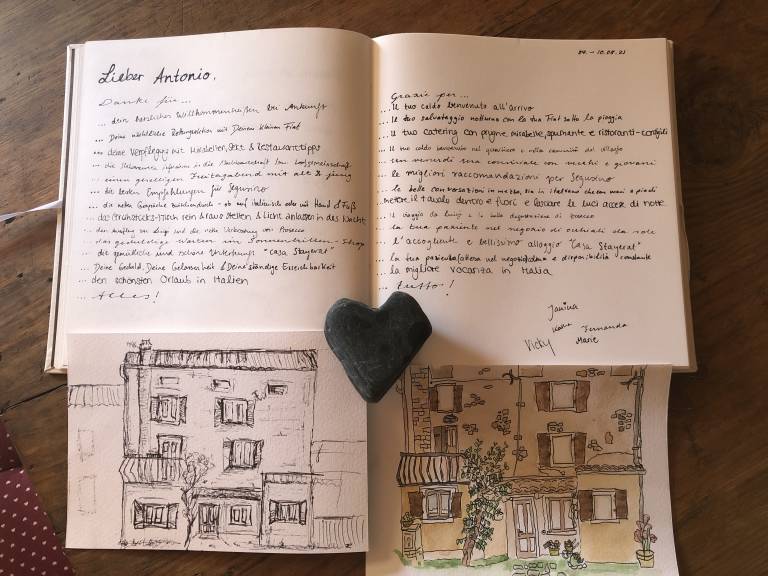 Lieber Antonio,
Danke für...
... dein herzliches Willkommenheißen bei Ankunft
... Deine nächtliche Rettungsaktion mit Deinem kleinen Fiat
... deine Verpflegung mit Mirabellen, Sekt & Restauranttipps
... einen geselligen Freitagabend mit alt & jung
... die besten Empfehlungen für Segusino
... die netten Gespräche zwischendurch - ob auf italienisch oder mit Hand & Fuß
... das Frühstücks-Tisch rein & raus stellen & Licht anlassen in der Nacht
... den Ausflug zu Luigi und die tolle Verkostung von Prosecco
... das geduldige Warten im Sonnenbrillen-Shop
... die gemütliche und schöne Unterkunft "Casa Stayerat"
... Deine Geduld, Deine Gelassenheit & Deine ständige Erreichbarkeit
... den schönsten Urlaub in Italien
... Alles!
04. - 10.08.23
Grazie per...
... il tuo caldo benvenuto all'arrivo
... il tuo salvataggio notturno con la tua Fiat sotto la pioggia
... il tuo catering con prugne mirabelle, spumante e ristoranti-consigli
... il tuo caldo benvenuto nel quartiere e nella comunità del villaggio
... un venerdì sera conviviale con vecchi e giovani
... le migliori raccomandazioni per Segusino
... le belle conversazioni in mezzo, sia in italiano che con mani e piedi
... mettere il tavolo dentro e fuori e lasciare le luci accese di notte
... il viaggio da Luigi e la bella degustazione di prosecco
... la tua pazienza nel negozio di occhiali da sole
... l'accogliente e bellissimo alloggio "Casa Stayerat"
... la tua pazienza, calma e disponibilità constante
... la migliore vacanza in Italia
... tutto!
Janina
Fernanda
Vicky
Marie